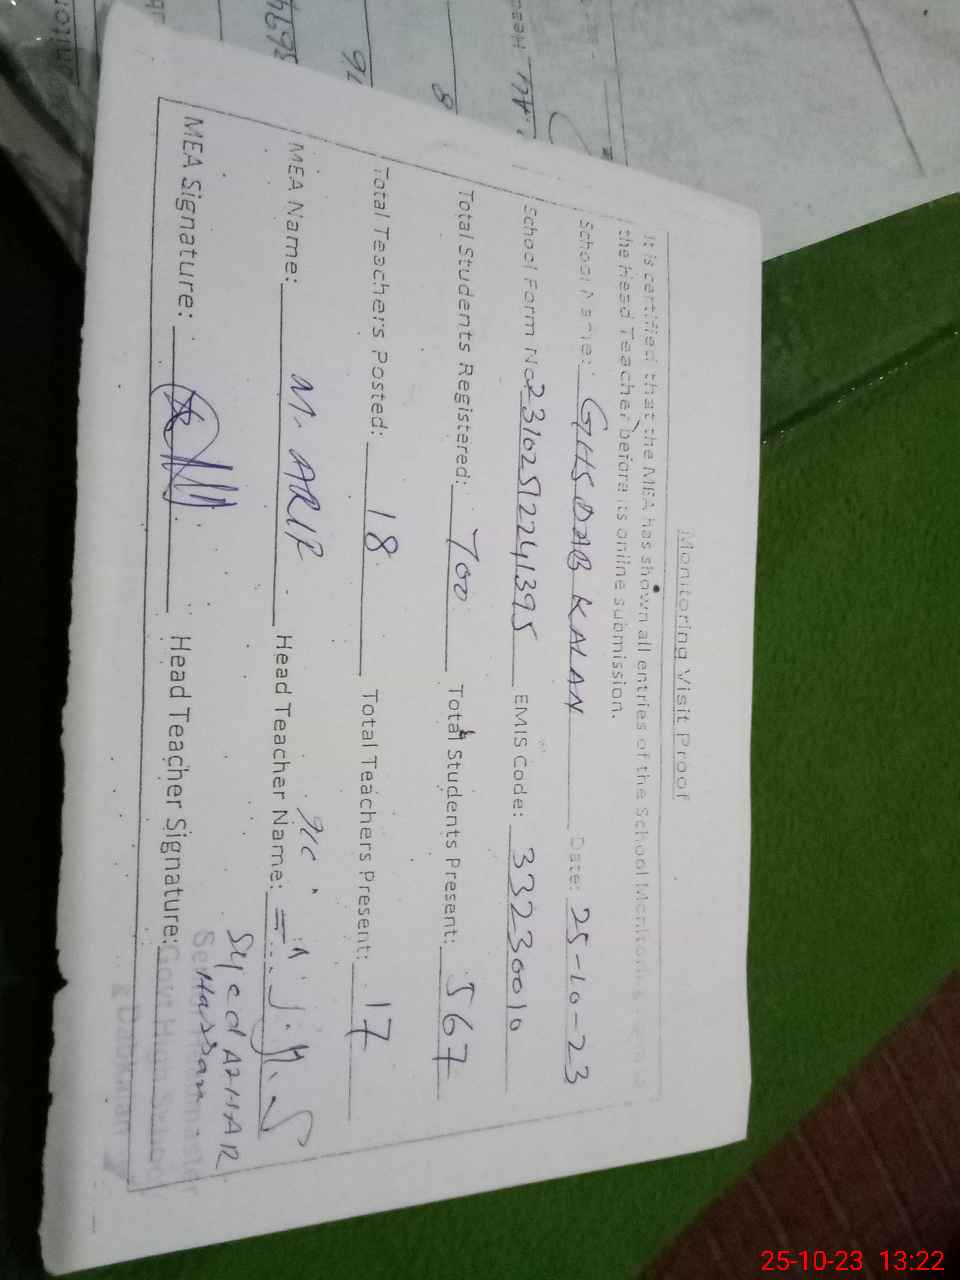 Monitoring Visit Proof
It is certified that the MEA has shown all entries of the School Monitoring
the Head Teacher before its online submission.
School Name: GHS DAB KALAN Date: 25-10-23
School Form No. 231025122241395 EMIS Code: 33230010
Total Students Registered: 700 Total Students Present: 567
Total Teachers Posted: 18 Total Teachers Present: 17
MEA Name: M. ARIF Head Teacher Name:
Syed AZHAR
Hassan
MEA Signature: Head Teacher Signature:
Senior Headmaster
Govt High School
Dab Kalan
25-10-23 13:22